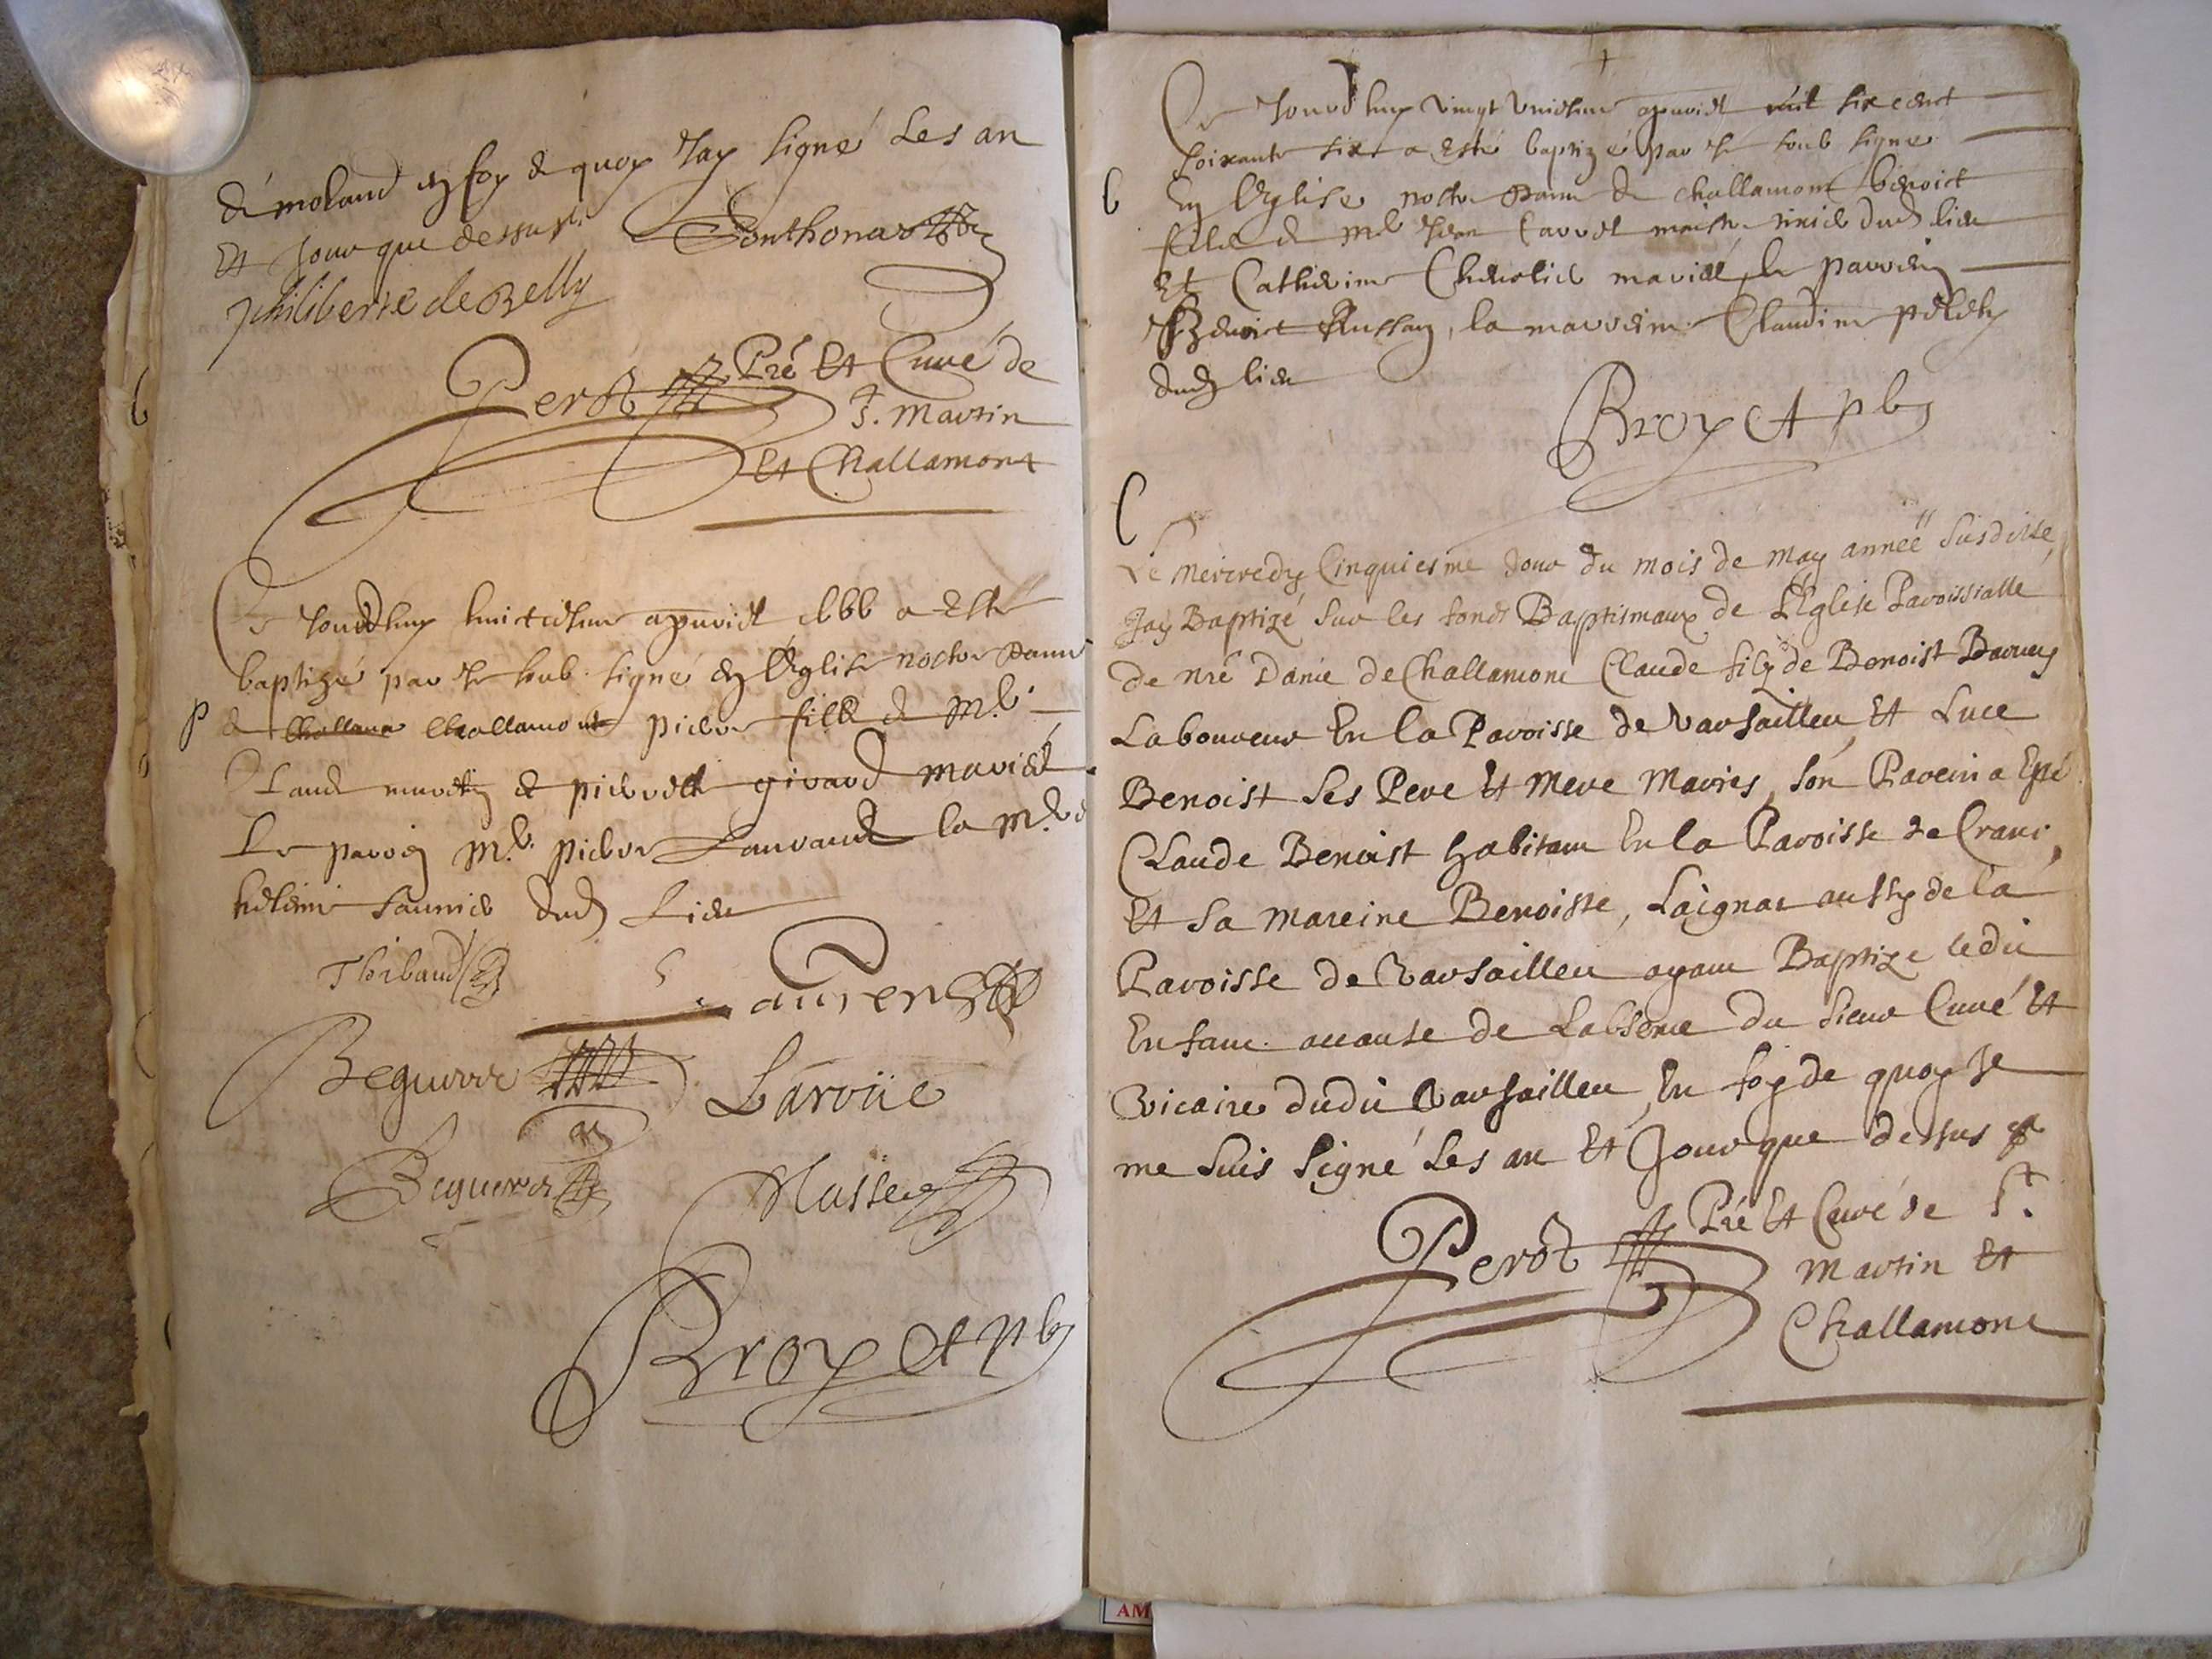 de moland en foy de quoy Jay signé Les an
Et Jour que dessus
Philiberte de Belly
Ponthonas
Perot Pre Et Curé de
S. Martin
Et Challamont
Ce Jourdhuy huictiesme apvril 1666 a Esté
baptizé par Je soub signé en l'Eglise nostre Dame
P
de Challamont pierre filz de Mr.
Claude et pierrette girard mariés
Le parrin Mr. pierre Laurand la
heleine saunier dud Lieu
Thibaud
Laurens
Beguerre
Laroüe
Beguerre
Musse
Broyet pbr
Ce Jourdhuy vingt uniesme apvril mil six cent
soixante six a esté baptizé par Je soub signé
b
En l'Eglise nostre Dame de challamont benoict
filz de Mr Jean maistre dud lieu
Et Catherine mariés, le parrein
Benoict, la marreine Claudine
dud lieu
Broyet pbr
C
Le Mercredy Cinquiesme Jour du mois de May année susditte,
Jay Baptizé sur les fonds Baptismaux de L'Eglise Paroissialle
de nre Dame de Challamont Claude filz de Benoist
Laboureur En la Paroisse de Varsailleu, Et Luce
Benoist Ses Pere Et Mere Mariés, Son Parein a Esté
Claude Benoist habitant En la Paroisse de Crans,
Et Sa mareine Benoiste, Laignac aussy de la
Paroisse de Varsailleu ayant Baptizé ledit
Enfant acause de Labsence du Sieur Curé Et
Vicaire dudit Varsailleu, En foy de quoy Je
me Suis Signé Les an Et Jour que dessus
Perot Pre Et Curé de St.
Martin Et
Challamont
AM